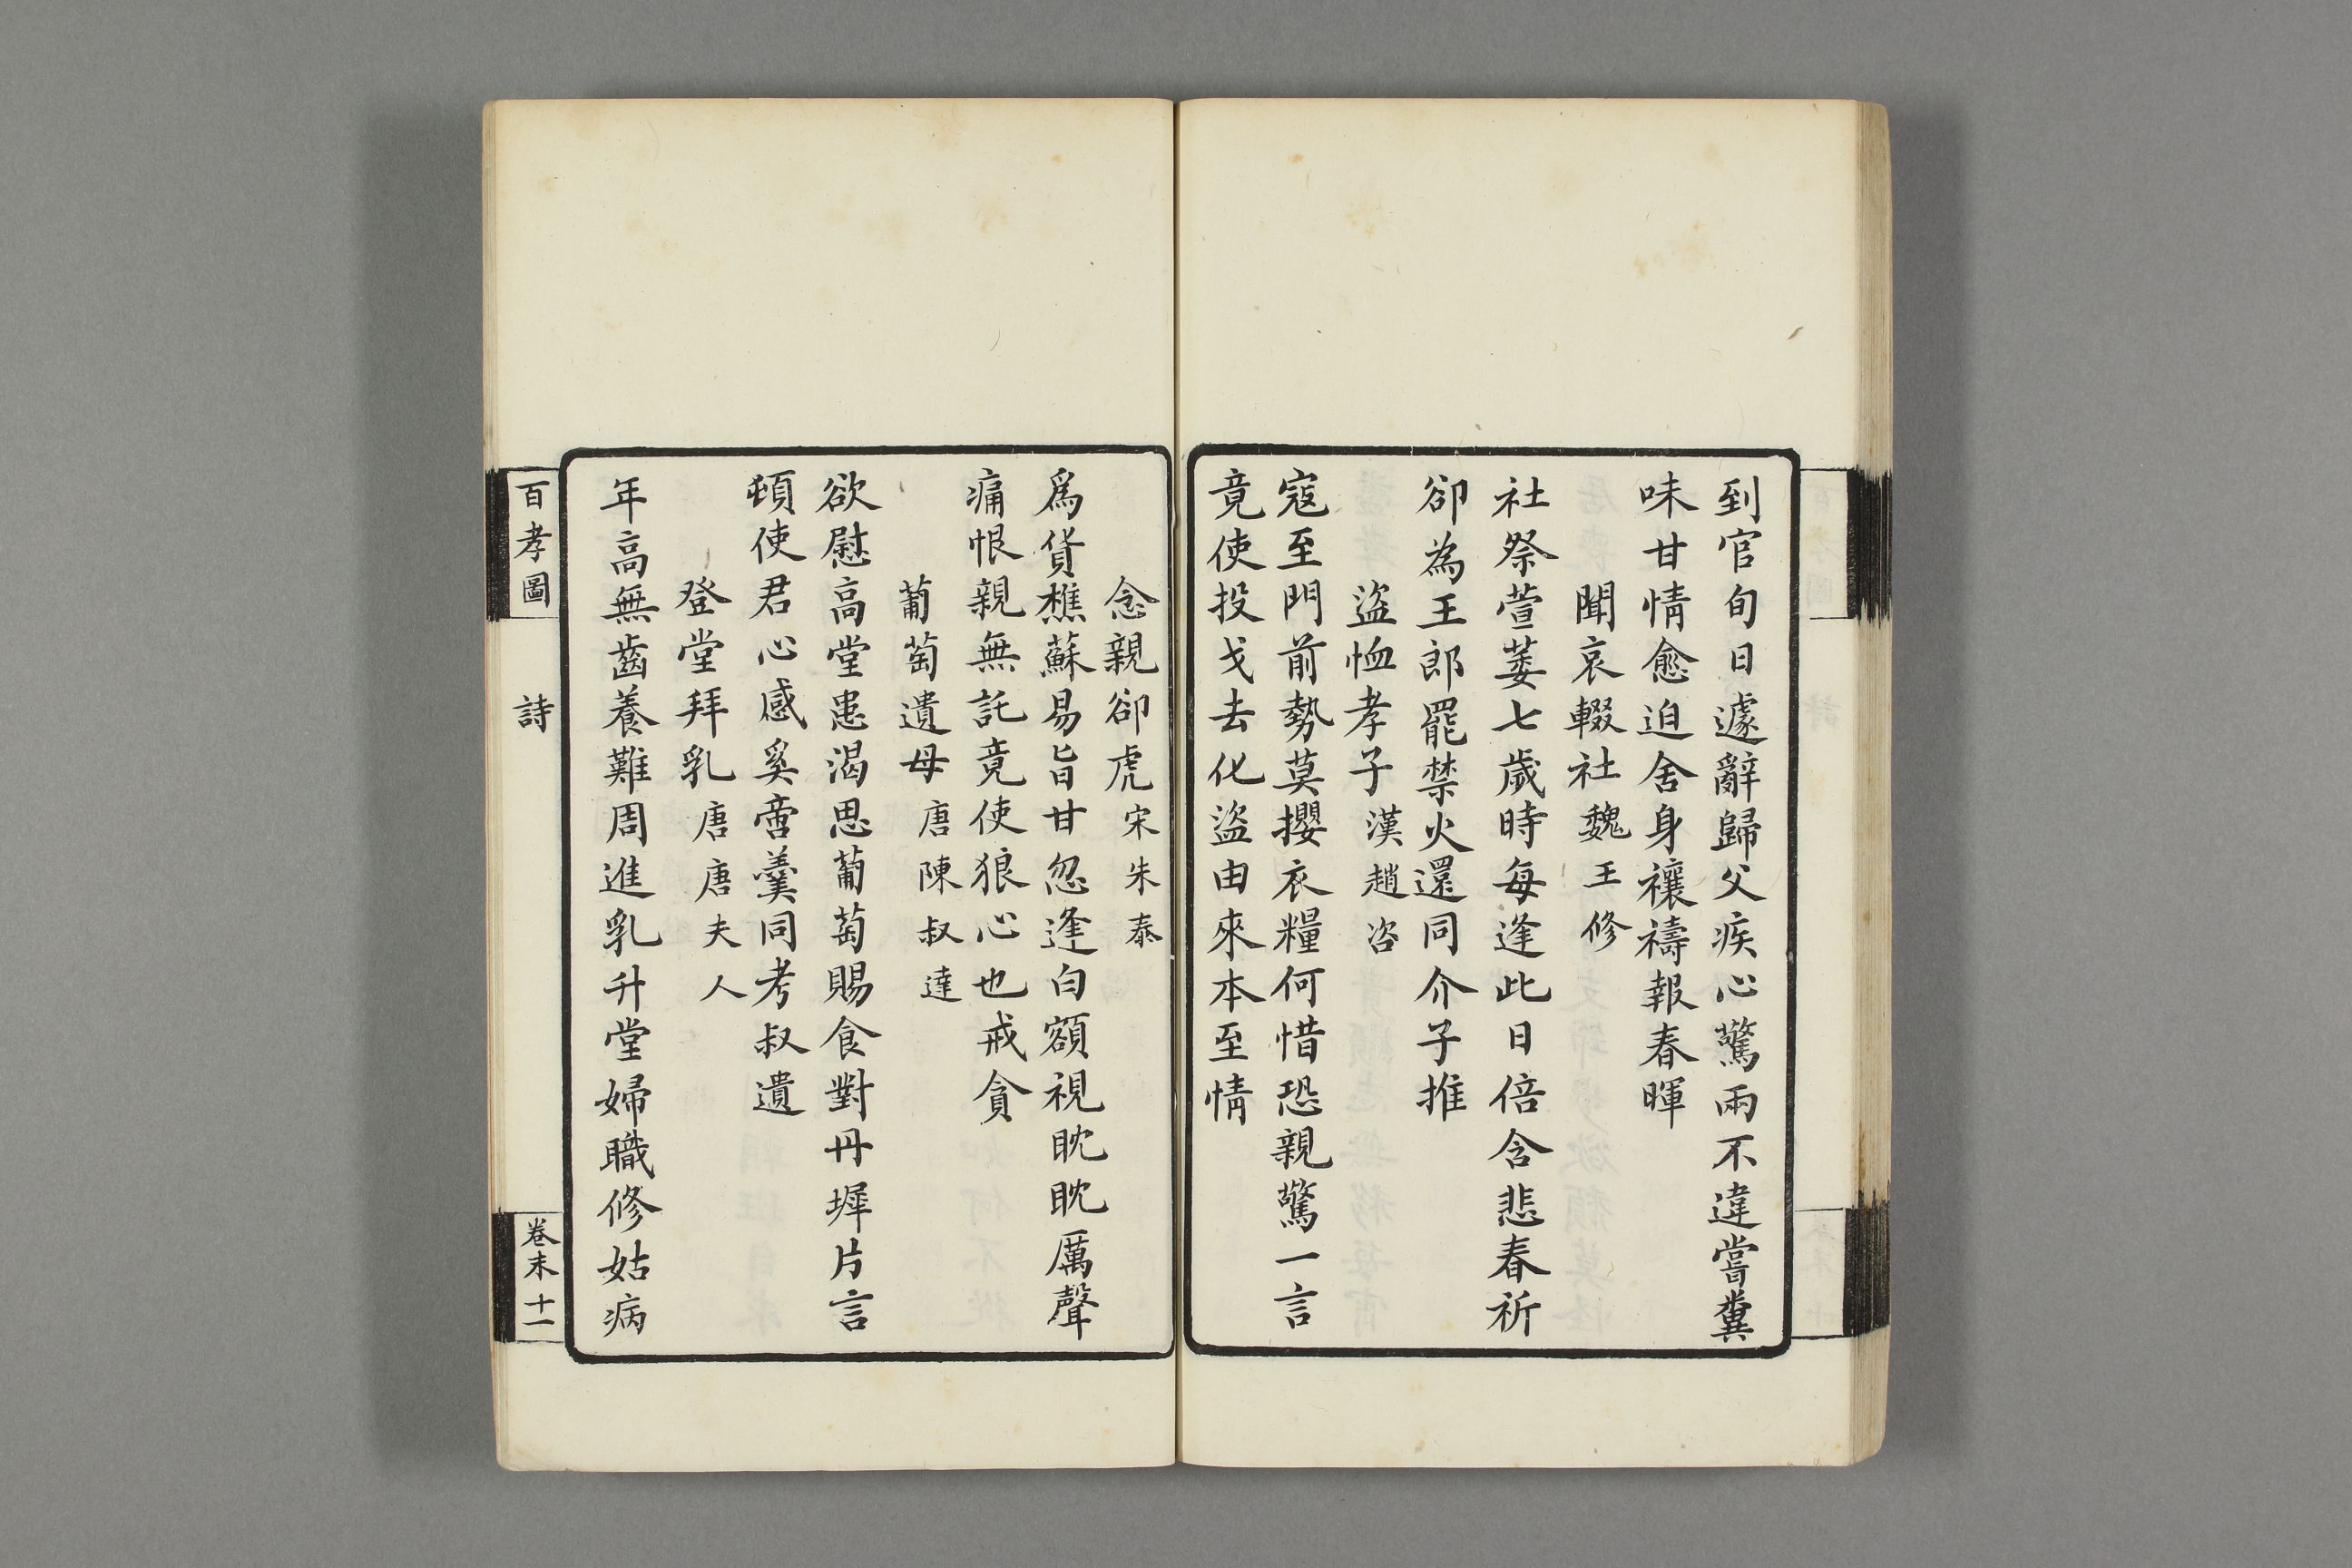 到官旬日遽辭歸父疾心驚兩不違嘗糞
味甘情愈迫舍身禳禱報春暉
聞哀輟社魏王修
社祭萱萎七歲時每逢此日倍含悲春祈
卻為王郎罷禁火還同介子推
盜恤孝子漢趙咨
寇至門前勢莫攖衣糧何惜恐親驚一言
竟使投戈去化盜由來本至情
念親卻虎宋朱泰
爲貨樵蘇易旨甘忽逢白額視眈眈厲聲
痛恨親無託竟使狼心也戒貪
葡萄遺母唐陳叔達
欲慰高堂患渴思葡萄賜食對丹墀片言
頓使君心感奚啻羹同考叔遺
登堂拜乳唐唐夫人
年高無齒養難周進乳升堂婦職修姑病
百孝圖
詩
卷末
十一